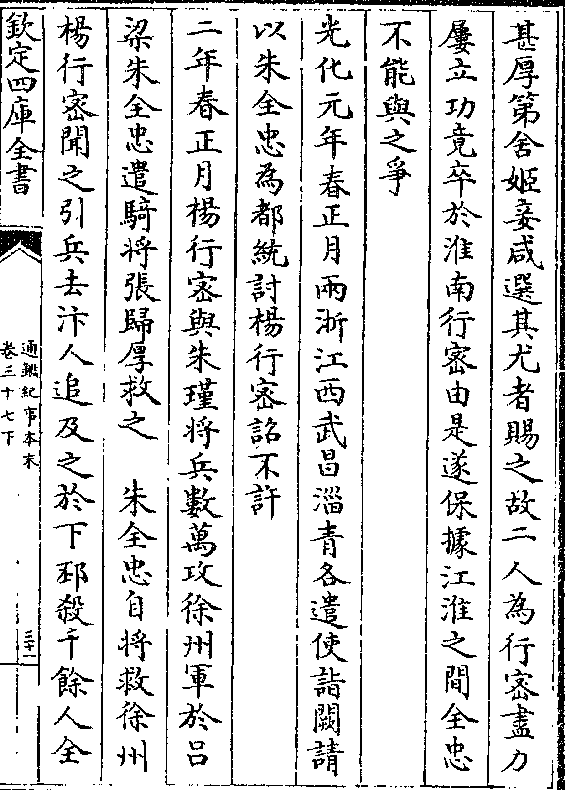 甚厚第舍姬妾咸選其尤者賜之故二人為行密盡力
屢立功竟卒於淮南行密由是遂保據江淮之間全忠
不能與之爭
光化元年春正月兩浙江西武昌淄青各遣使詣闕請
以朱全忠為都統討楊行密詔不許
二年春正月楊行密與朱瑾将兵數萬攻徐州軍於吕
梁朱全忠遣騎将張歸厚救之　朱全忠自将救徐州
楊行密聞之引兵去汴人追及之於下邳殺千餘人全
欽定四庫全書
通鑑紀事本末
卷三十七下